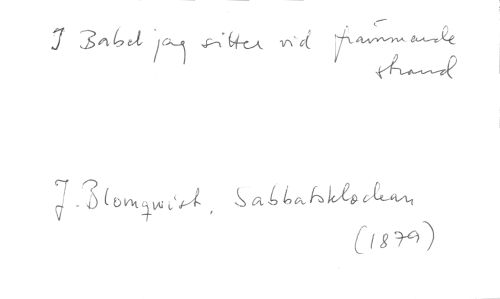 I Babel jag sitter vid främmande
strand
J. Blomqvist, Sabbatsklockan
(1879)